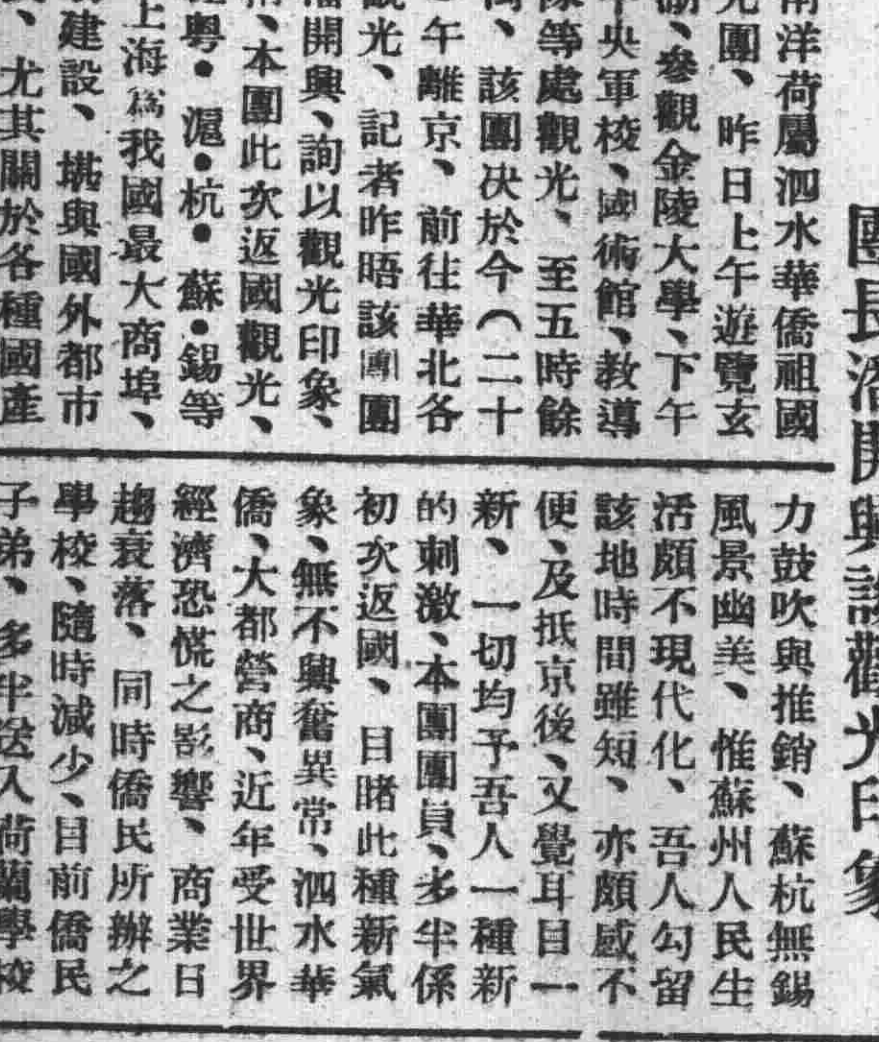 團長潘開興談觀光印象
南洋荷屬泗水華僑祖國
光團、昨日上午遊覽玄
湖、參觀金陵大學、下午
中央軍校、國術館、教導
隊等處觀光、至五時餘
、該團决於今(二十
午離京、前往華北各
觀光、記者昨晤該團團
潘開興、詢以觀光印象、
、本團此次返國觀光、
粤•滬•杭•蘇•錫等
上海爲我國最大商埠、
建設、堪與國外都市
、尤其關於各種國產
力鼓吹與推銷、蘇杭無錫
風景幽美、惟蘇州人民生
活頗不現代化、吾人勾留
該地時間雖短、亦頗感不
便、及抵京後、又覺耳目一
新、一切均予吾人一種新
的刺激、本團團員、多半係
初次返國、目睹此種新氣
象、無不興奮異常、泗水華
僑、大都營商、近年受世界
經濟恐慌之影響、商業日
趨衰落、同時僑民所辦之
學校、隨時減少、目前僑民
子弟、多半送入荷蘭學校